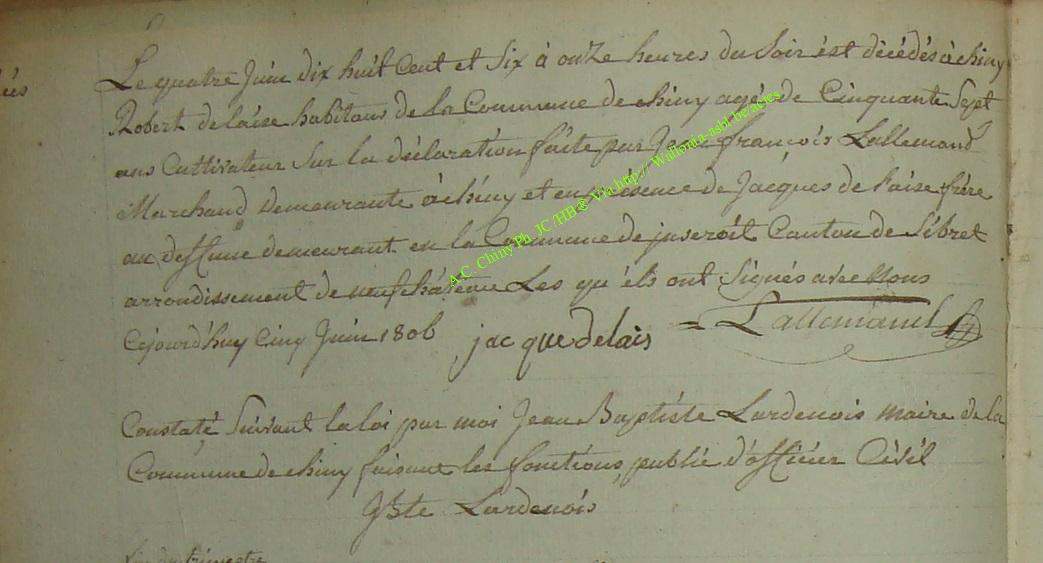 Le quatre Juin dix huit Cent et Six à onZe heures du Soir est décédés à chiny
Robert delaise habitans de la Commune de chiny agé de Cinquante Sept
ans Cultivateur Sur la déclaration faite par Jean françois Lallemand
Marchand Demeurante à chiny et en présence de Jacques de laise frère
au deffunc demeurant en la Commune de juseroit Canton de Sibret
arrondissement de neufchâteau Les qu'els ont Signés avec Nous
Cejourd'huy Cinq Juin 1806 jacque delais Lallemand
Constaté Suivant la loi par moi Jean Baptiste Lardenois maire de la
Commune de chiny faisant les fonctions publie d'officier Civil
JBte Lardenois
A.C. Chiny Ph. JC /HB® Via http:// Wallonia-asbl.be/actes